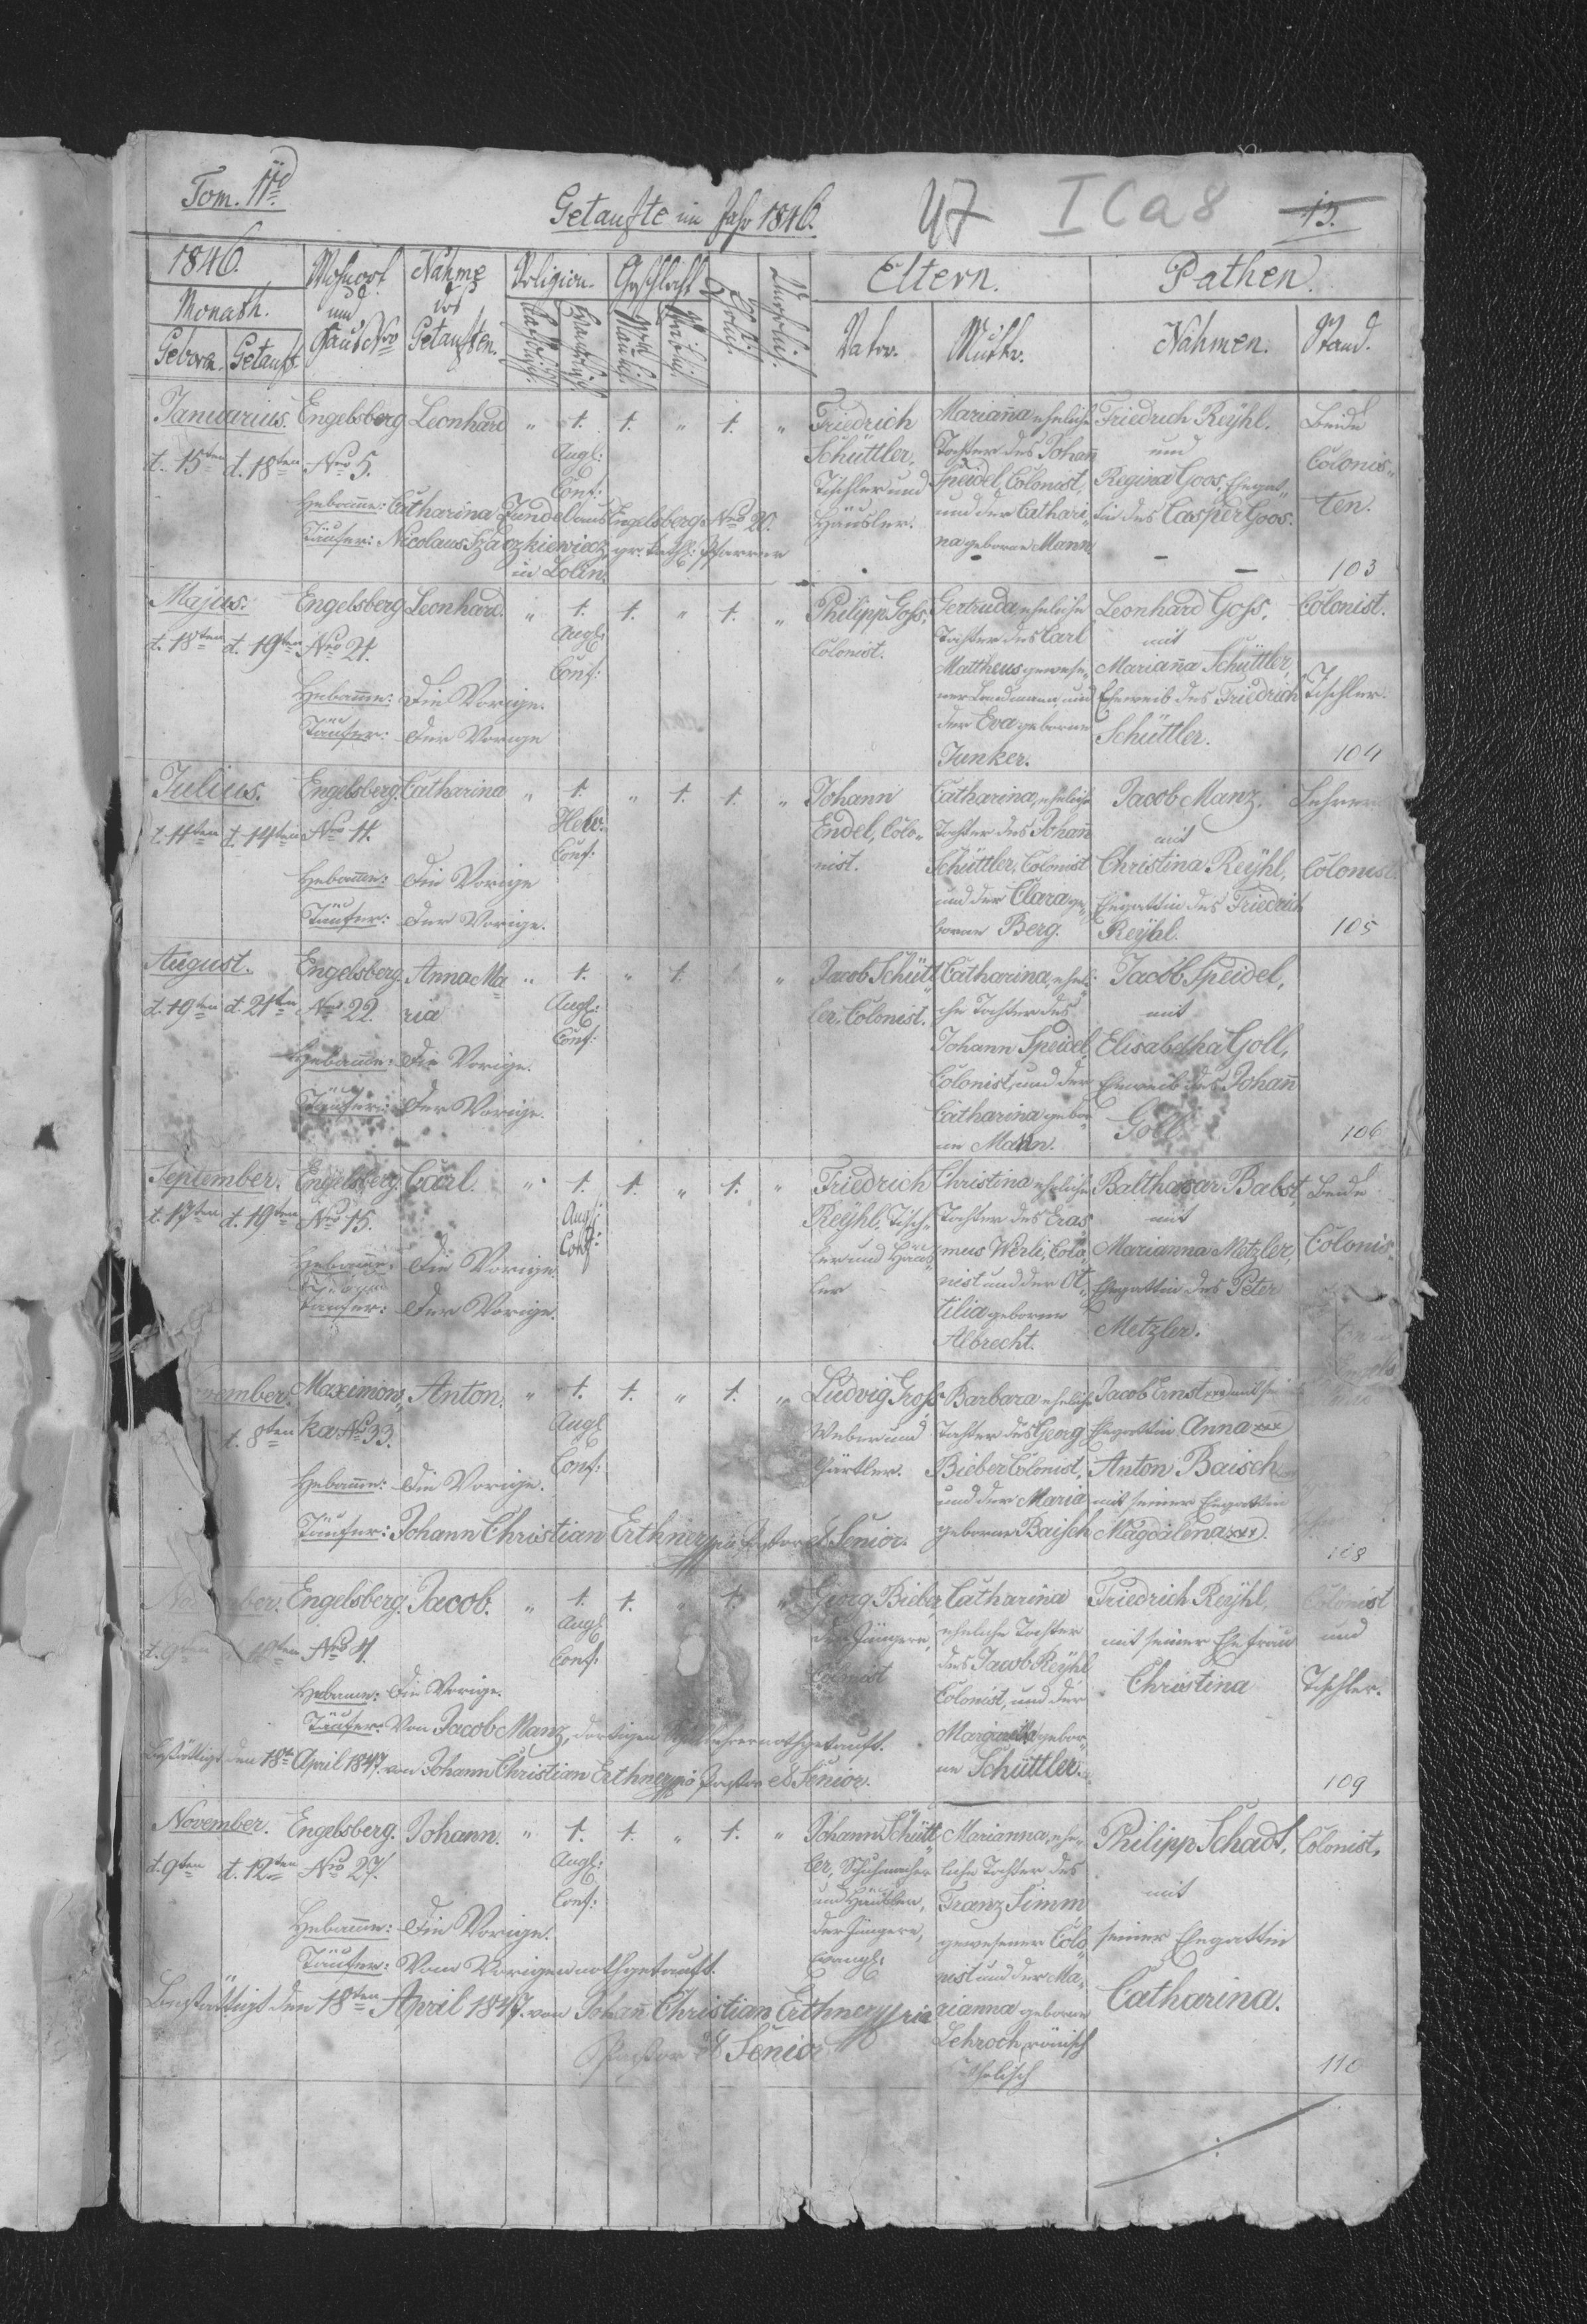 Tom. II.
Getaufte im Jahr 1846.
47 I C a 8
13.
1846.
Monath.
Geboren. Getauft
Wohnort und Haus Nro
Nahme des Getauften.
Religion.
Katholisch.
Evangelisch.
Geschlecht
Männlich.
Weiblich.
Ehelich.
Unehelich.
Eltern.
Vater.
Mutter.
Pathen.
Nahmen.
Stand.
Januarius.
d. 15ten d. 18ten
Engelsberg
Nro 5.
Leonhard
" 1. 1. " 1. "
Augl:
Conf:
Friedrich
Schüttler,
Tischler und
Häusler.
Marian̄a eheliche
Tochter des Johan̄
Speidel, Colonist,
und der Cathari-
na geborne Mann
Friedrich Reÿhl.
und
Regina Goos, Ehegat-
tin des Casper Goos.
Beide
Colonis-
ten.
Hebam̄e: Catharina Zundel aus Engelsberg Nro 20.
Täufer: Nicolaus Szaczkiewicz gr. kath: Pfarrer
in Lolin.
103
Majus.
d. 18ten d. 19ten
Engelsberg
Nro 21.
Leonhard.
" 1. 1. " 1. "
Augl:
Conf:
Philipp Goss,
Colonist.
Gertruda eheliche
Tochter des Carl
Mattheus gewese-
ner Landmann, und
der Eva geborne
Junker.
Leonhard Goss,
mit
Marian̄a Schüttler,
Eheweib des Friedrich
Schüttler.
Colonist.
Tischler.
Hebam̄e: Die Vorige.
Täufer: Der Vorige
104
Julius.
d. 11ten d. 14ten
Engelsberg.
Nro 11.
Catharina
" 1. " 1. 1. "
Helv:
Conf:
Johann
Endel, Colo-
nist.
Catharina, eheliche
Tochter des Johan̄
Schüttler, Colonist
und der Clara ge-
borne Berg.
Jacob Manz,
mit
Christina Reÿhl,
Ehegattin des Friedrich
Reÿhl.
Lehrer
Colonist
Hebam̄e: Die Vorige
Täufer: Der Vorige.
105
August.
d. 19ten d. 21ten
Engelsberg.
Nro 22.
Anna Ma
ria
" 1. " 1. 1. "
Augl:
Conf:
Jacob Schütt-
ler, Colonist.
Catharina, eheli-
che Tochter des
Johann Speidel,
Colonist, und der
Catharina gebor-
ne Mann.
Jacob Speidel,
mit
Elisabetha Goll,
Eheweib des Johan̄
Goll.
Hebam̄e: Die Vorige.
Täufer: Der Vorige.
106
September.
d. 17ten d. 19ten
Engelsberg
Nro 15.
Carl.
" 1. 1. " 1. "
Augl:
Conf:
Friedrich
Reÿhl, Tisch-
ler und Häus-
ler
Christina eheliche
Tochter des Eras-
mus Werli, Colo-
nist und der Ot-
tilia geborne
Albrecht.
Balthasar Babst,
mit
Marianna Metzler,
Ehegattin des Peter
Metzler.
Beide
Colonis-
Hebam̄e: Die Vorige
Täufer: Der Vorige.
vember.
d. 8ten
Maximow-
ka Nro 33.
Anton.
" 1. 1. " 1. "
Augl
Conf:
Ludvig Gross
Weber und
Gärtler.
Barbara eheliche
Tochter des Georg
Bieber Colonist,
und der Maria
geborne Baisch
Jacob Ernst
Ehegattin Anna xxx
Anton Baisch
mit seiner Ehegattin
Magdalena xxx.
Hebam̄e: Die Vorige.
Täufer: Johann Christian Erthner mpia Pastor et Senior.
108
ber.
d. 9ten 12ten
Engelsberg.
Nro 4.
Jacob.
" 1. 1. " 1. "
Augl
Conf:
Georg Bieber
der Jüngere,
Colonist
Catharina
eheliche Tochter
des Jacob Reÿhl
Colonist, und der
Margaretha gebor-
ne Schüttler.
Friedrich Reÿhl,
mit seiner Ehefrau
Christina
Colonist
und
Tischler.
Hebam̄e: Die Vorige.
Täufer: Von Jacob Manz, dortigen Schullehrer nothgetauft.
Bestättigt den 18ten April 1847. von Johann Christian Erthner mpia Pastor et Senior.
109
November.
d. 9ten d. 12ten
Engelsberg.
Nro 27.
Johann.
" 1. 1. " 1. "
Augl:
Conf:
Johann Schütt-
ler, Schuhmacher
und Häusler,
der Jüngere,
Evangl.
Marianna, ehe-
liche Tochter des
Franz Simm
gewesener Colo-
nist und der Ma-
rianna geborne
Lehroch, römisch
katholisch
Philipp Schadt,
mit
seiner Ehegattin
Catharina.
Colonist,
Hebam̄e: Die Vorige.
Täufer: Vom Vorigen nothgetauft.
Bestättigt den 18ten April 1847. von Johan̄ Christian Erthner mpia
Pastor et Senior
110